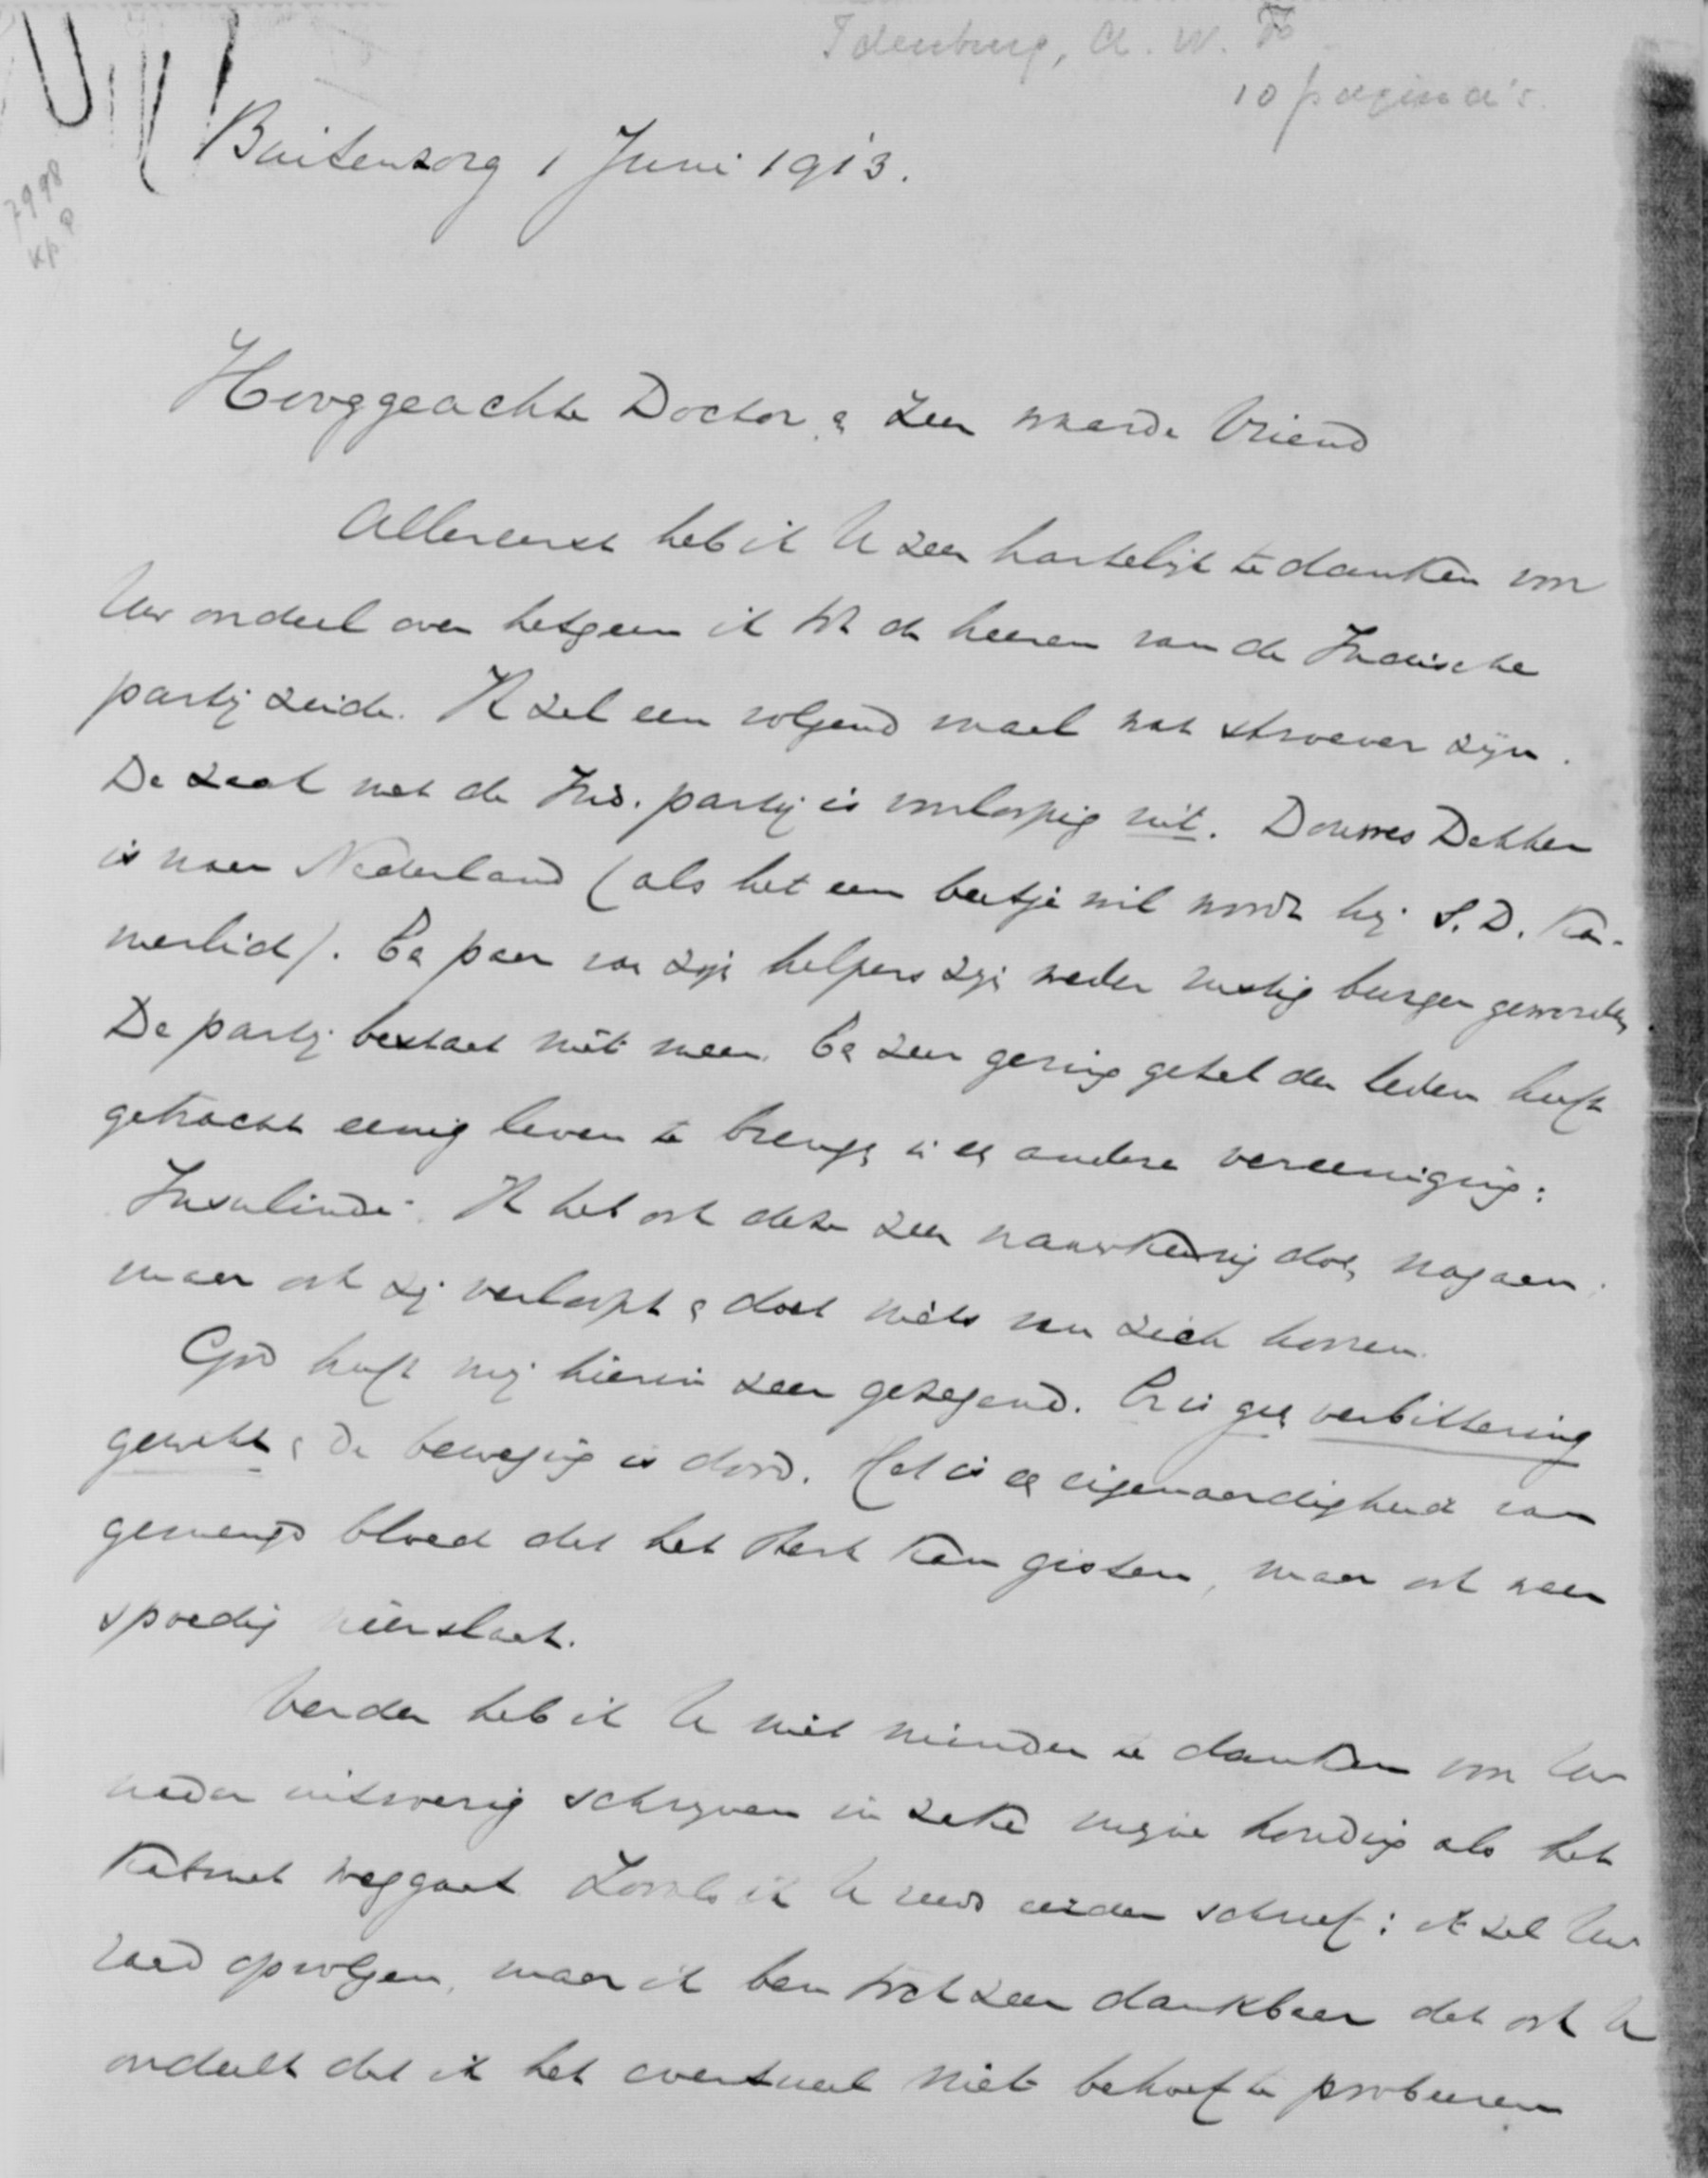 Idenburg, A. W. F.
10 pagina's.
7998
Kp.
Buitenzorg 1 Juni 1913.
Hooggeachte Doctor & zeer waarde Vriend
Allereerst heb ik U zeer hartelijk te danken voor
Uw oordeel over hetgeen ik tot de heeren van de Indische
partij zeide. Ik zal een volgend maal wat stroever zijn.
De zaak met de Ind. partij is voorloopig uit. Douwes Dekker
is naar Nederland (als het een beetje wil wordt hij S.D. Ka-
merlid). Een paar van zijn helpers zijn weder rustig burger geworden.
De partij bestaat niet meer. Een zeer gering getal der leden heeft
getracht eenig leven te brengen in een andere vereeniging:
Insulinde. Ik heb ook deze zeer nauwkeurig doen nagaan.
maar ook zij verloopt & doet niets van zich hooren.
God heeft mij hierin zeer gezegend. Er is geen verbittering
gewekt & de beweging is dood. Het is een eigenaardigheid van
gemengd bloed dat het sterk kan gisten, maar ook weer
spoedig neerslaat.
Verder heb ik U niet minder te danken voor Uw
weder uitvoerig schrijven in zake mijne houding als het
Kabinet weggaat. Zooals ik U reeds eerder schreef: ik zal Uw
raad opvolgen, maar ik ben toch zeer dankbaar dat ook U
oordeelt dat ik het eventueel niet behoef te probeeren